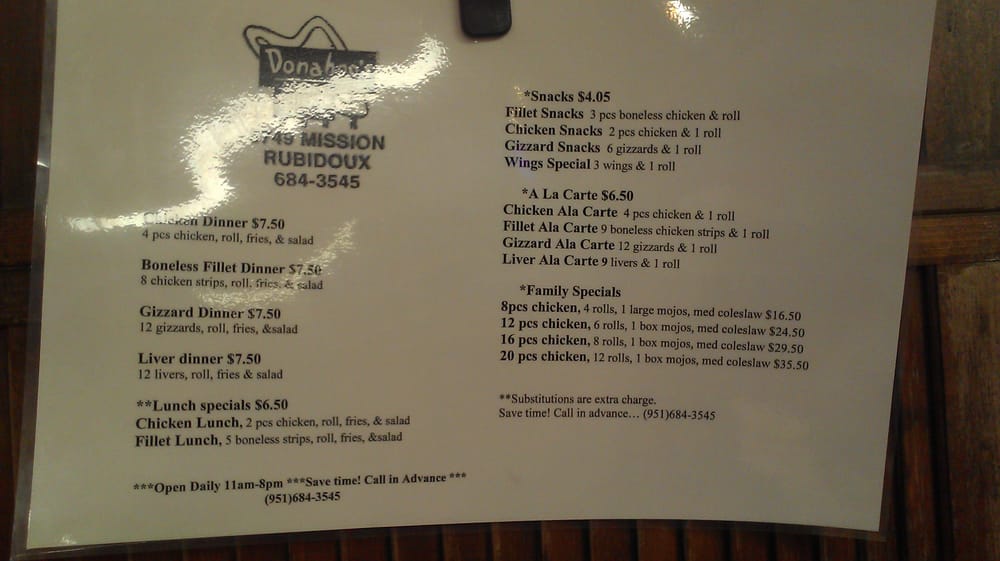 Donahoo's
749 MISSION
RUBIDOUX
684-3545
Chicken Dinner $7.50
4 pcs chicken, roll, fries, & salad
Boneless Fillet Dinner $7.50
8 chicken strips, roll, fries, & salad
Gizzard Dinner $7.50
12 gizzards, roll, fries, &salad
Liver dinner $7.50
12 livers, roll, fries & salad
**Lunch specials $6.50
Chicken Lunch, 2 pcs chicken, roll, fries, & salad
Fillet Lunch, 5 boneless strips, roll, fries, &salad
***Open Daily 11am-8pm ***Save time! Call in Advance ***
(951)684-3545
*Snacks $4.05
Fillet Snacks 3 pcs boneless chicken & roll
Chicken Snacks 2 pcs chicken & 1 roll
Gizzard Snacks 6 gizzards & 1 roll
Wings Special 3 wings & 1 roll
*A La Carte $6.50
Chicken Ala Carte 4 pcs chicken & 1 roll
Fillet Ala Carte 9 boneless chicken strips & 1 roll
Gizzard Ala Carte 12 gizzards & 1 roll
Liver Ala Carte 9 livers & 1 roll
*Family Specials
8pcs chicken, 4 rolls, 1 large mojos, med coleslaw $16.50
12 pcs chicken, 6 rolls, 1 box mojos, med coleslaw $24.50
16 pcs chicken, 8 rolls, 1 box mojos, med coleslaw $29.50
20 pcs chicken, 12 rolls, 1 box mojos, med coleslaw $35.50
**Substitutions are extra charge.
Save time! Call in advance… (951)684-3545